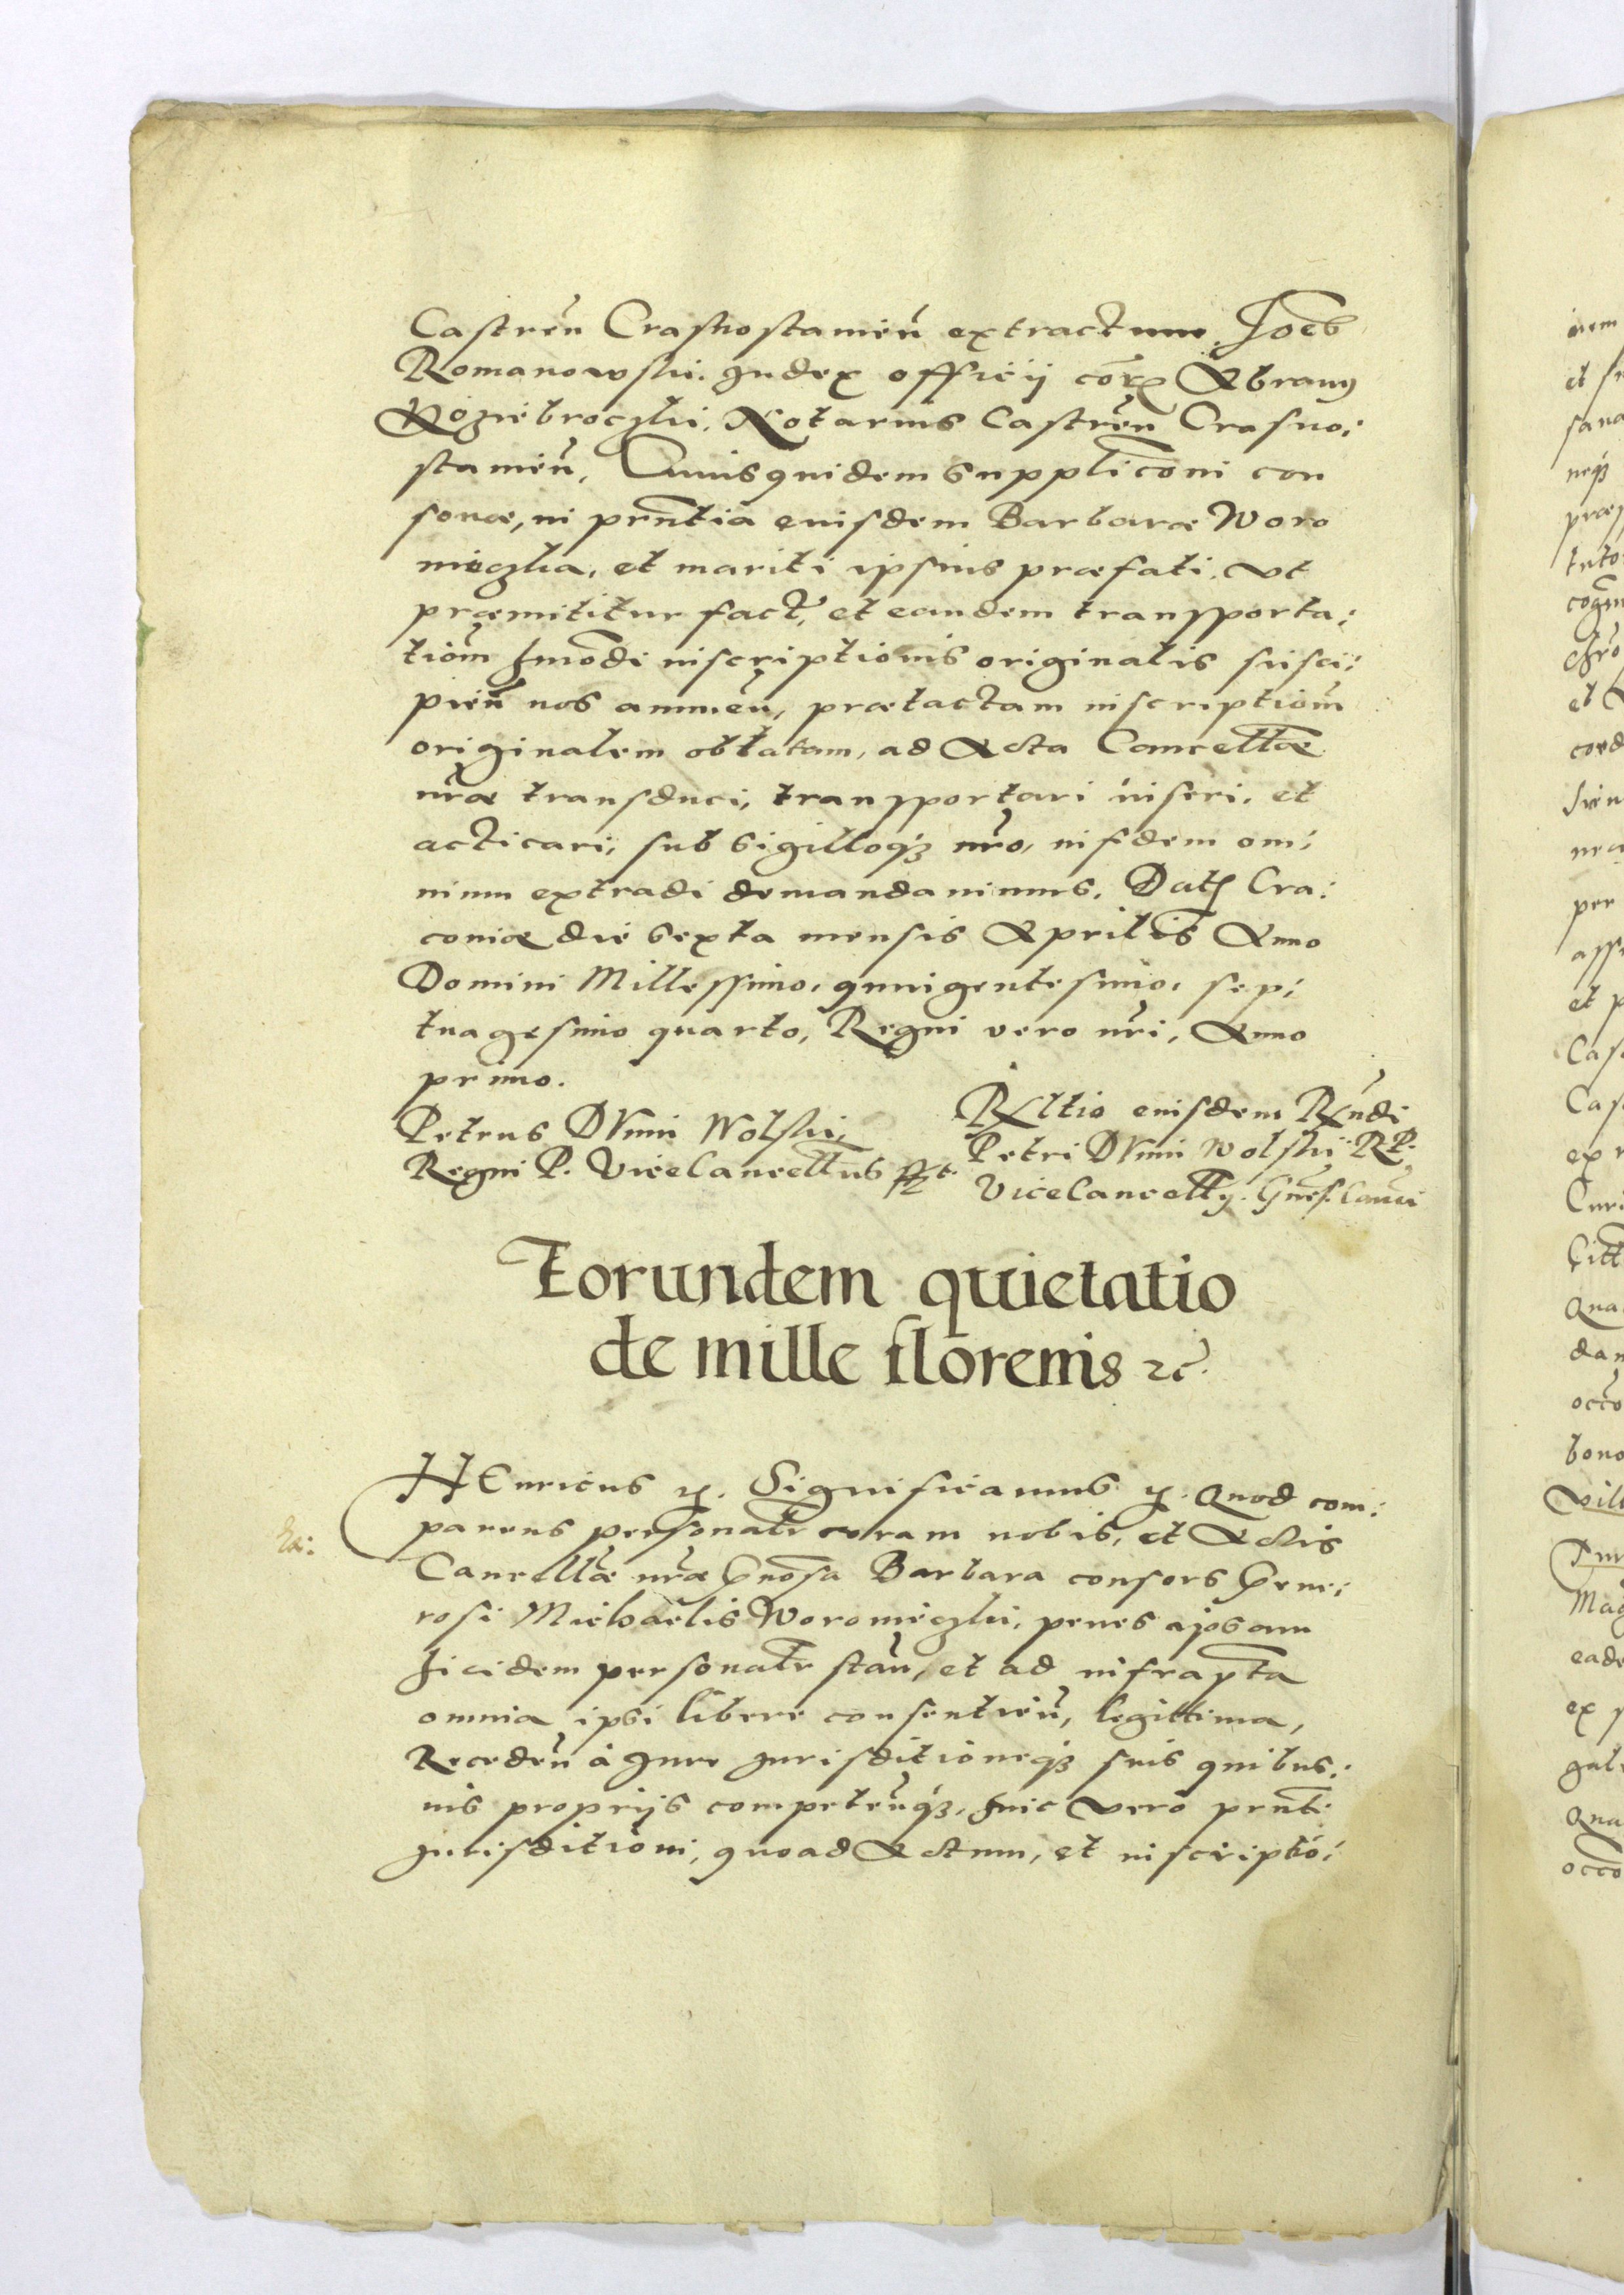 Castren̄ Crasnostamien̄ extractum. Joe͠s
Romanowski. Judex officij cor͠, Abramus
Roziebroczki. Notarius Castren̄ Crasno:
stamien̄, Cuius quidem supplicōni con
sonæ, in prn̄tia eiusdem Barbaræ Woro
mieczka, et mariti ipsius præfati, vt
præmititur fact', et eandem transporta:
tiom̄ hmōdi inscriptionis originalis susci:
pien̄ nos annuen̄, prætactam inscriptiom̄
originalem oblatam, ad Acta Cancellæ
nr̄æ transduci, transportari inseri, et
acticari, sub sigilloq3 nr̄o, ijsdem om:
nium extradi demandauimus. Dat͠ Cra:
couiæ die sexta mensis Aprilis Anno
Domini Millessimo, quuigentesimo, sep:
tuagesimo quarto, Regni vero nr̄i, Anno
primo.
Petrus DVnin Wolski,
Regni P. ViceCancellr̄us sst.
Rltio eiusdem Rndi
Petri DVnin Wolskij R P.
ViceCancelly. Gnes. Canci
Eorundem quietatio
de mille florenis ꝛc̄.
HEnricus ꝛc. Significamus ꝛc. Quod com:
parens personalr coram nobis, et Actis
Cancellæ nr̄æ Gnōsa Barbara consors Gene:
rosi Michaelis Woromieczki, penes ipsam
hicidem personalr stan̄, et ad infrapta
omnia ipsi libere consentien̄, legittima,
Receden̄ à Jure jurisditioneq3 suis quibus:
uis proprijs competen̄q3, huic vero prn̄ti
jurisditioni, quoad Actum, et inscriptō: